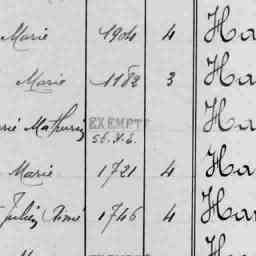 Marie 1904 4 Ha
Marie 1182 3 Ha
Mathurin EXEMPT Ha
Marie 1721 4 Ha
Julien Aimé 1746 4 Ha